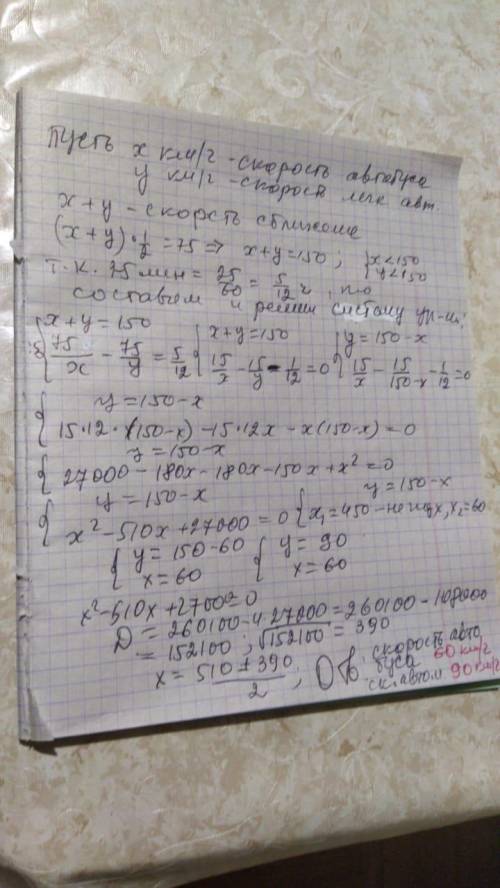 Пусть x км/ч - скорость автобуса
y км/ч - скорость легк авт.
x+y - скорсть сближение
(x+y)·1/2 = 75 ⇒ x+y=150 ; {x<150
{y<150
т.к. 25 мин = 25/60 = 5/12 ч, то
составим и решим систему ур-ий:
{x+y=150 {x+y=150 {y=150-x
:5 {75/x - 75/y = 5/12 {15/x - 15/y - 1/12 = 0 {15/x - 15/150-x - 1/12 = 0
{y=150-x
{15·12·(150-x) - 15·12x - x(150-x) = 0
{y=150-x
{27000 - 180x - 180x - 150x + x² = 0
{y=150-x {y=150-x
{x² - 510x + 27000 = 0 {x₁=450 - не подх, x₂=60
{y=150-60 {y=90
{x=60 {x=60
x² - 510x + 27000 = 0
D = 260100 - 4·27000 = 260100 - 108000
= 152100 ; √152100 = 390
x = 510 ± 390/2 ; Отв. скорость авто
буса 60 км/г
ск. автом 90 км/г